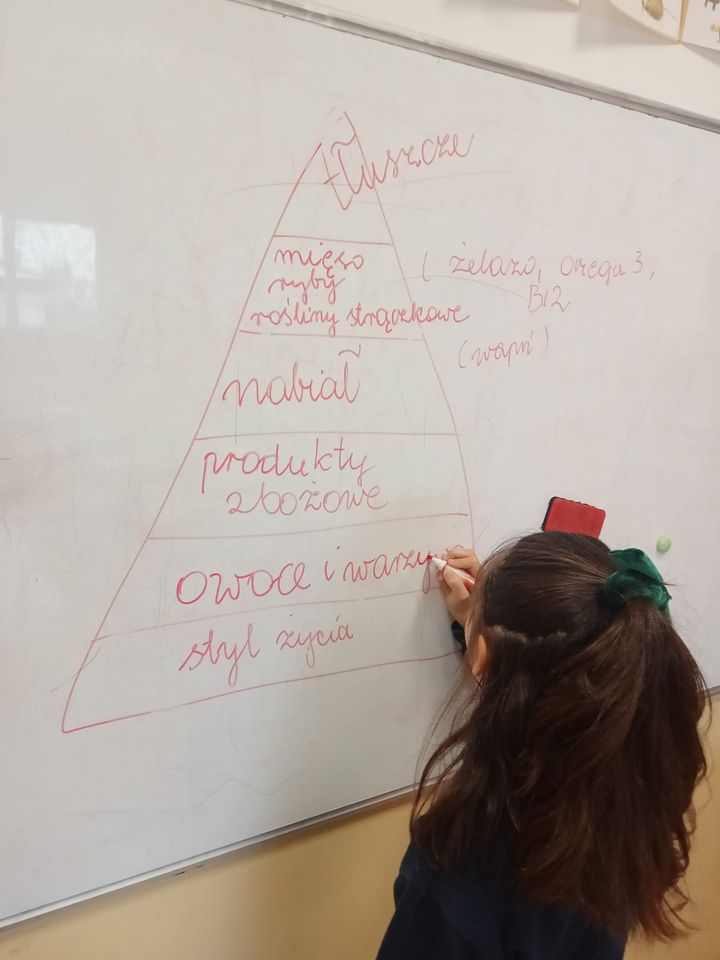 tłuszcze
mięso
ryby
rośliny strączkowe
( żelazo, omega 3,
B12
nabiał
(wapń)
produkty
zbożowe
owoce i warzy
styl życia